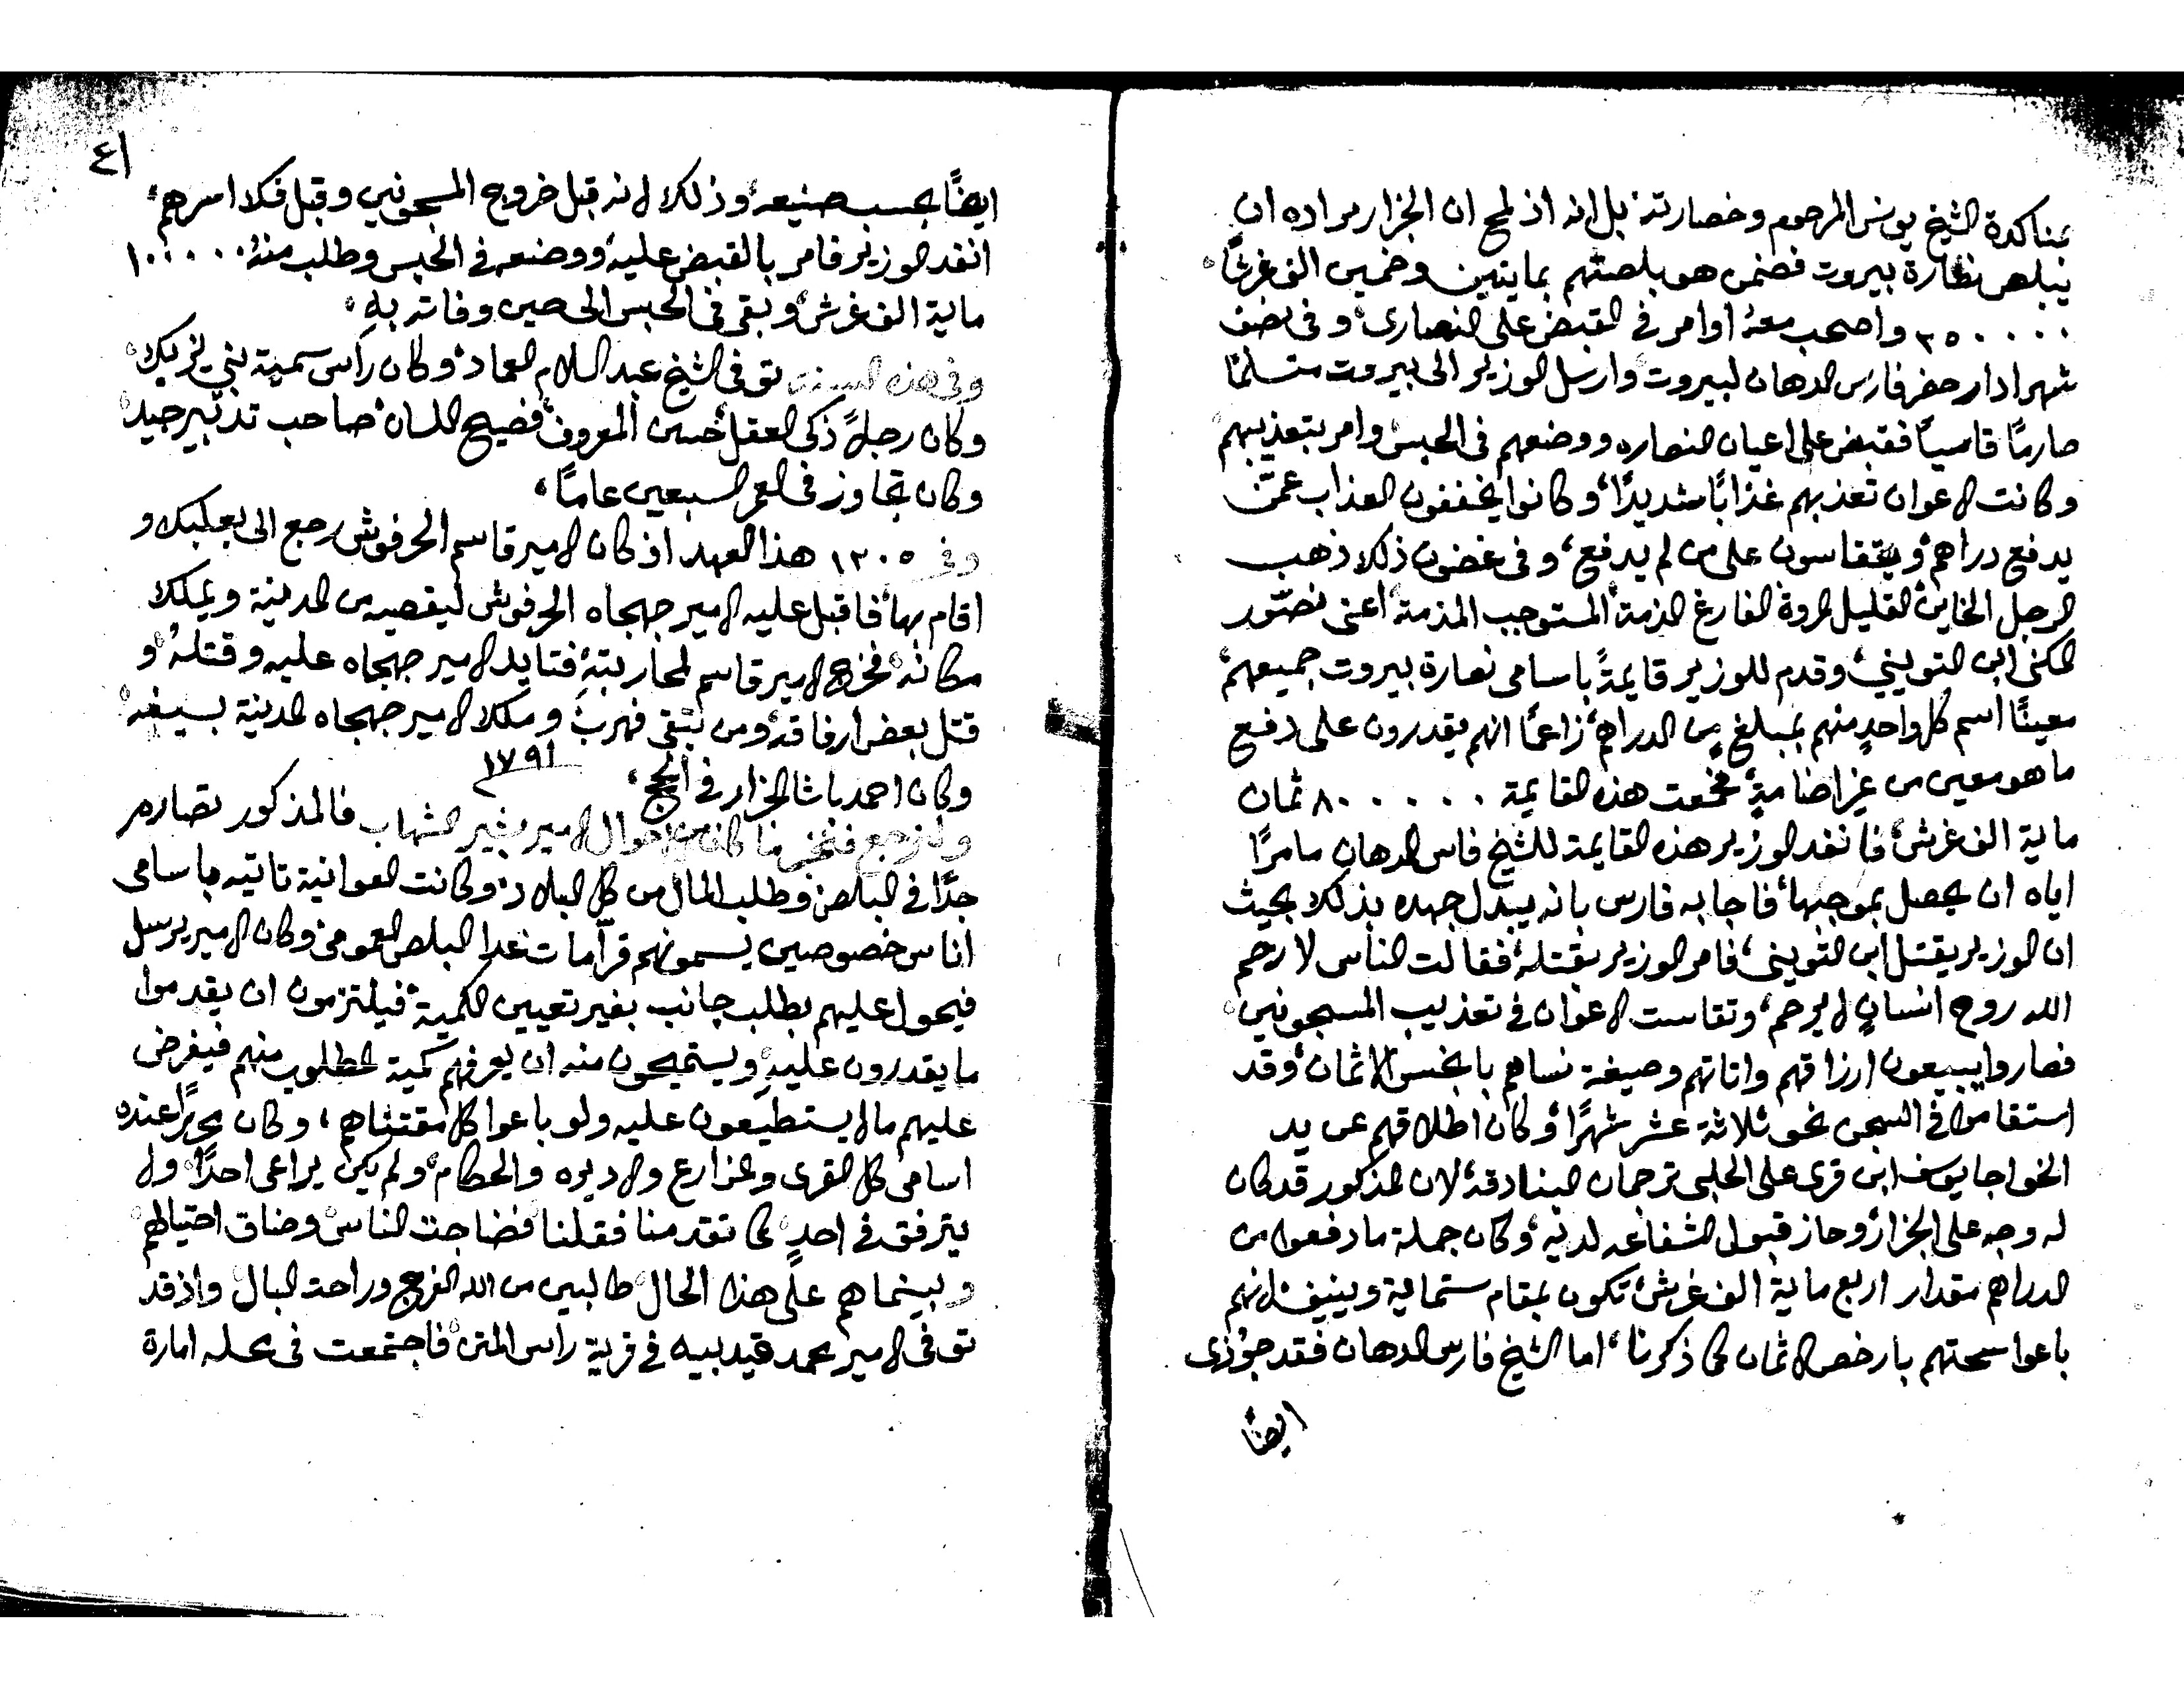 بمناكدة الشيخ يونس المرحوم وخصارته بل انه اذ لمح ان الجزار مراده ان
يبلص نظارة بيروت فضمن هو بلصتهم بمايتين وخمسين الف غرشًا
٢٥٠٠٠٠ واصحب معهُ اوامر في القبض على النصارى، وفي نصف
شهر ادار حضر فارس الدهان لبيروت وارسل الوزير الى بيروت متسلمًا
صارمًا قاسيًا فقبض على اعيان النصاره ووضعهم في الحبس وامر بتعذيبهم
وكانت الاعوان تعذبهم عذابًا شديدًا، وكانوا يخففون العذاب عمّن
يدفع دراهم، ويتقاسون على من لم يدفع، وفي غضون ذلك ذهب
الرجل الخاين القليل المروة الفارغ الذمة المستوجب المذمة اعني نصّور
المكنى ابن التويني، وقدم للوزير قايمةً باسامي نصارة بيروت جميعهم
معينًا اسم كل واحدٍ منهم بمبلغٍ من الدراهم، زاعمًا انهم يقدرون على دفع
ما هو معين من غير اضامةٍ، فجمعت هذه القايمة ٨٠٠٠٠٠ ثمان
ماية الف غرش، فانفد الوزير هذه القايمة للشيخ فارس الدهان مامرًا
اياه ان يحصل بموجبها، فاجابه فارس بانه يبدل جهده بذلك بحيث
ان الوزير يقتل ابن التويني، فامر الوزير بقتله، فقالت الناس لا رحم
الله روح انسانٍ لا يرحم، وتقاست الاعوان في تعذيب المسجونين
فصاروا يبيعون ارزاقهم واتاتهم وصيغة نساهم بابخس الاثمان، وقد
استقاموا في السجن نحو ثلاثة عشر شهرًا، وكان اطلاقهم عن يد
الخواجا يوسف ابن قرى على الحلبي ترجمان البنادقة، لان المذكور قد كان
له وجه على الجزار، وحاز قبول الشفاعه لديه، وكان جملة ما دفعوه من
الدراهم مقدار اربع ماية الف غرش، تكون بمقام ستماية وينيف لانهم
باعوا سحتهم بارخص الاثمان كما ذكرنا، اما الشيخ فارس الدهان فقد جُوزى
ايضًا
٤١
ايضًا بحسب صنيعه، وذلك لانه قبل خروج المسجونين وقبل فكلا اسرهم،
انفد الوزير فامر بالقبض عليهِ، ووضعه في الحبس وطلب منهُ ١٠٠٠٠٠
ماية الف غرش، وبقى في الحبس الى حين وفاته بهِ،
وفي هذه السنة توفى الشيخ عبد السلام العماد، وكان رأس سمية بني يزبك
وكان رجلًا ذكى العقل، حسن المعروف، فصيح اللسان، صاحب تدبير جيد
وكان تجاوز في العمر السبعين عامًا،
وفي ١٢٠٥ هذا العهد اذ كان الامير قاسم الحرفوش رجع الى بعلبك و
اقام بها، فاقبل عليه الامير جهجاه الحرفوش ليقصيه من المدينة ويملك
مكانهُ، فخرج الامير قاسم لمحاربتهِ، فتايد الامير جهجاه عليه وقتلهُ، و
قتل بعض ارفاقهِ، ومن تبقى فهرب، وملك الامير جهجاه المدينة بسيفهِ
١٧٩١
وكان احمد باشا الجزار في الحج،
ولنرجع فنخبر ما كان من احوال الامير بشير الشهاب فالمذكور تصارم
جدًا في البلص وطلب المال من كل البلاد، وكانت العوانية تاتيه باسامى
اناس خصوصيين يسمونهم قرآمات عدا البلص العومى، وكان الامير يرسل
فيحول عليهم بطلب جانب بغير تعيين الكمية، فيلتزمون ان يقدموا
ما يقدرون عليهِ، ويستميحون منه ان يعرفهم كمية المطلوب منهم فيفرض
عليهم ما لا يستطيعون عليه ولو باعوا كل مقتناهم، وكان عنده
اسامى كل القرى والمزارع والاديره والحكام، ولم يكن يراعى احدًا، ولا
يترفق في احدٍ، كما تقدمنا فقلنا فضاجت الناس، وضاق احتيالهم
وبينماهم على هذا الحال، طالبين من الله الفرج وراحت البال، واذ قد
توفى الامير محمد قيدبيه في قرية راس المتن، فاجتمعت في محله امارة